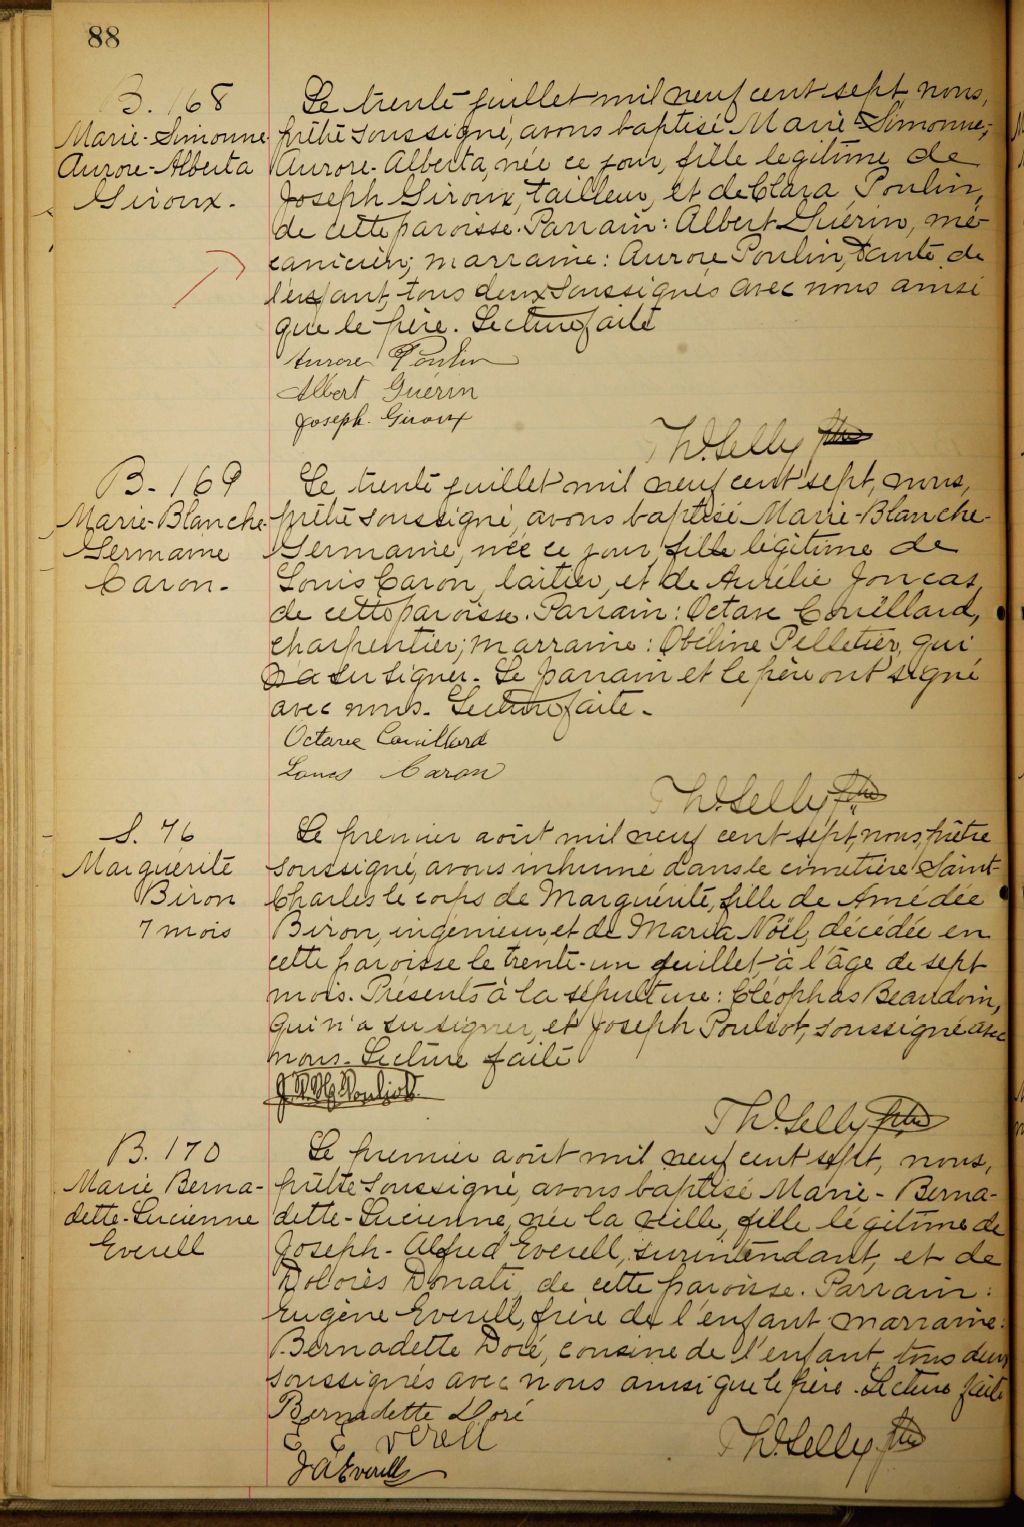 88
B. 168
Marie-Simonne-
Aurore-Alberta
Giroux.
Le trente juillet mil neuf cent sept nous,
prêtre soussigné, avons baptisé Marie-Simonne-
Aurore-Alberta, née ce jour, fille légitime de
Joseph Giroux, tailleur, et de Clara Poulin,
de cette paroisse. Parrain: Albert Guérin, mé-
canicien; marraine: Aurore Poulin, tante de
l'enfant, tous deux soussignés avec nous ainsi
que le père. Lecture faite
Aurore Poulin
Albert Guérin
Joseph Giroux
Th. Lelly ptre
B-169
Marie-Blanche-
Germaine
Caron-
Le trente juillet mil neuf cent sept, nous,
prêtre soussigné, avons baptisé Marie-Blanche-
Germaine, née ce jour, fille légitime de
Louis Caron, laitier, et de Aurélie Joncas,
de cette paroisse. Parrain: Octave Couillard,
charpentier; marraine: Obéline Pelletier, qui
n'a su signer. Le parrain et le père ont signé
avec nous. Lecture faite-
Octave Couillard
Louis Caron
Th. Lelly ptre
S. 76
Marguérite
Biron
7 mois
Le premier août mil neuf cent sept, nous, prêtre
soussigné, avons inhumé dans le cimetière Saint-
Charles le corps de Marguérite, fille de Amédée
Biron, ingénieur, et de Maria Noël, décédée en
cette paroisse le trente-un juillet, à l'âge de sept
mois. Présents à la sépulture: Cléophas Beaudoin,
qui n'a su signer, et Joseph Pouliot, soussigné avec
nous. Lecture faite
Pouliot
Th. Lelly ptre
B. 170
Marie Berna-
dette-Lucienne
Everell
Le premier août mil neuf cent sept, nous,
prêtre soussigné, avons baptisé Marie-Berna-
dette-Lucienne, née la veille, fille légitime de
Joseph-Alfred Everell, surintendant, et de
Dolorès Donati, de cette paroisse. Parrain:
Eugène Everell, frère de l'enfant; marraine:
Bernadette Doré, cousine de l'enfant, tous deux
soussignés avec nous ainsi que le père. Lecture faite
Bernadette Doré
E E verell
J A Everell
Th. Lelly ptre